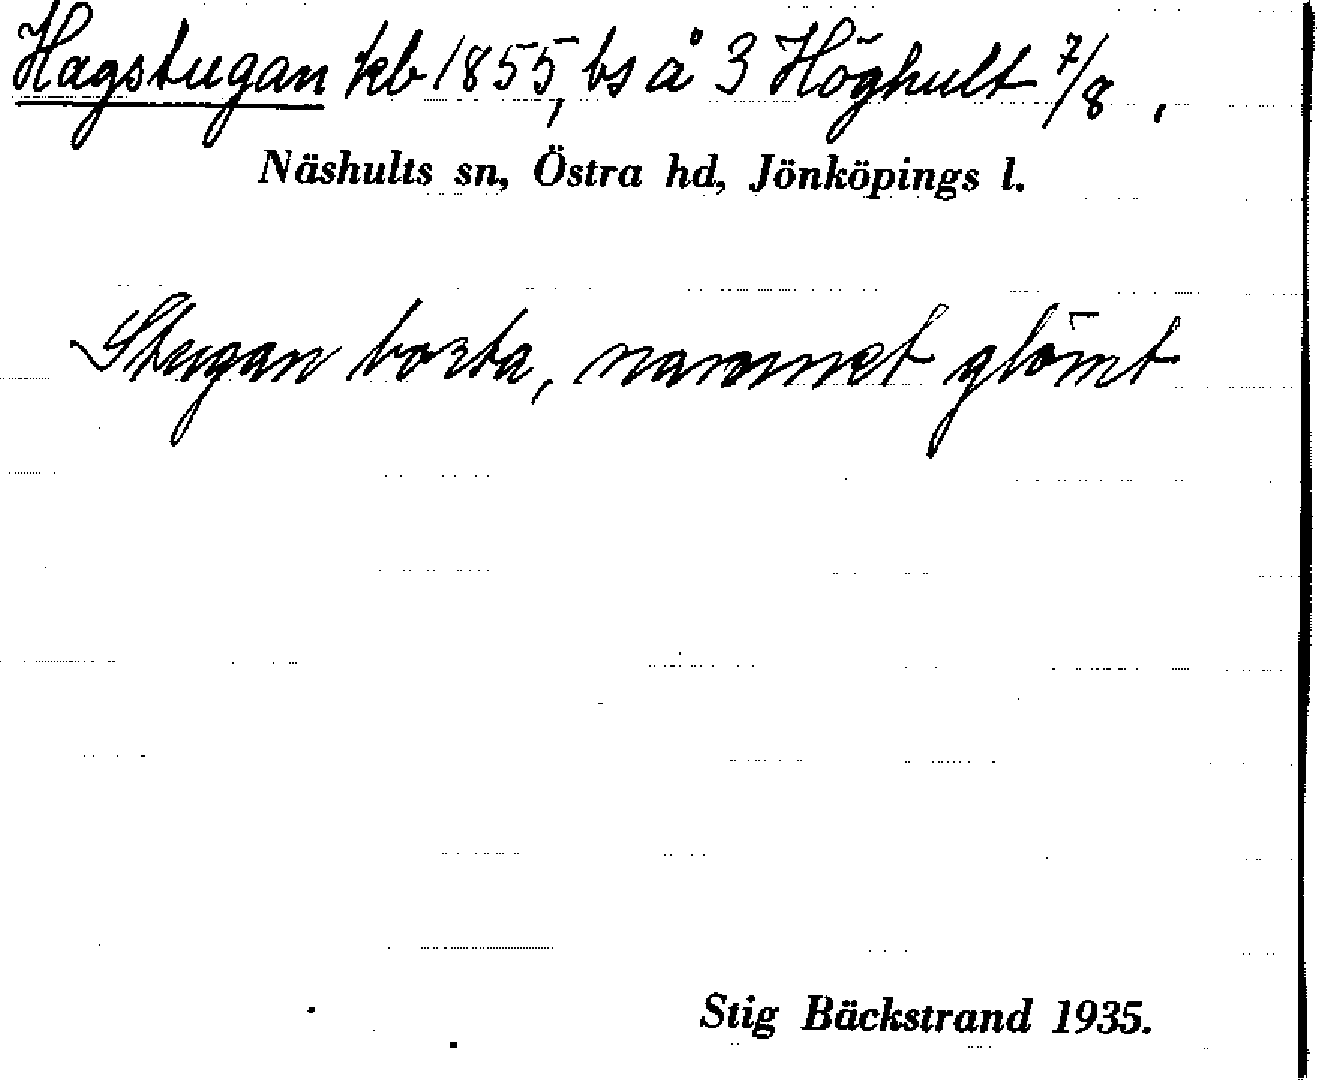 Hagstugan kb 1855, bs å 3 Höghult 7/8 ,
Näshults sn, Östra hd, Jönköpings l.
Stugan borta, namnet glömt
Stig Bäckstrand 1935.